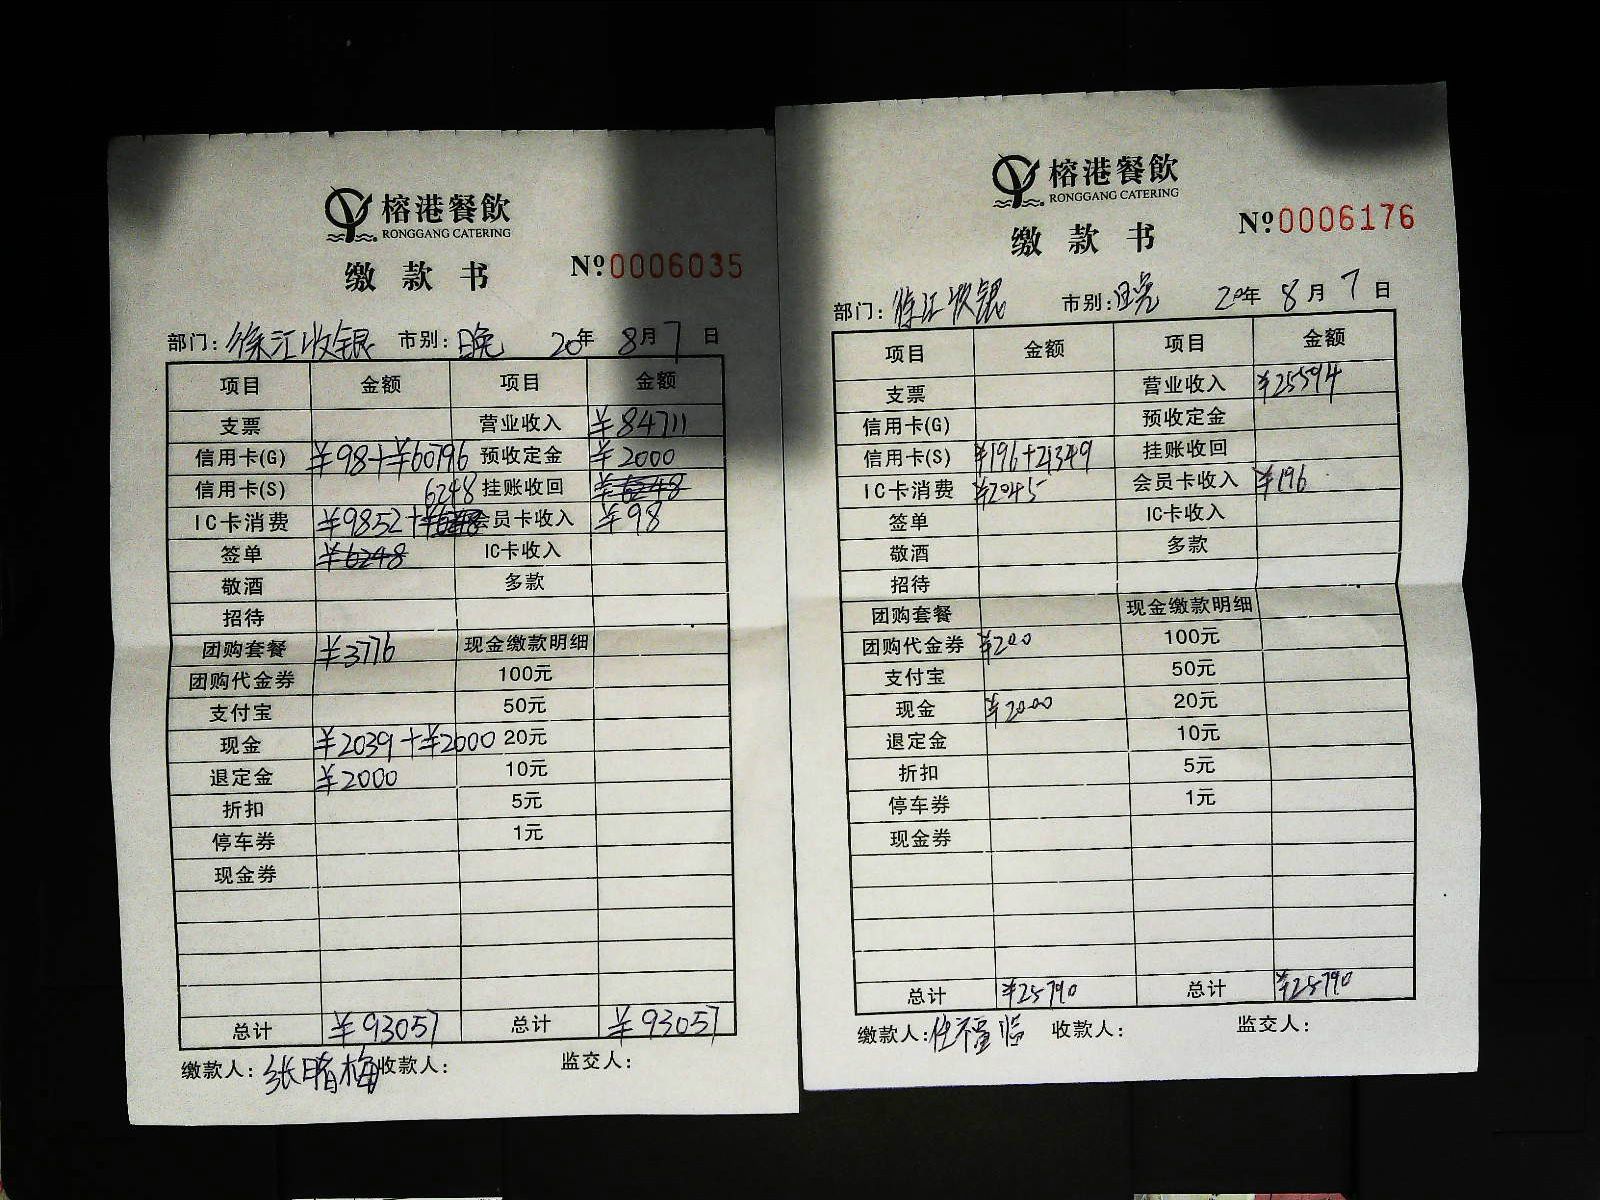 榕港餐飲
RONGGANG CATERING
缴款书
№0006035
部门:徐汇收银 市别:晚 20年8月7日
项目 金额 项目 金额
支票 营业收入 ¥84711
信用卡(G) ¥98+¥60796 预收定金 ¥2000
信用卡(S) 6248 挂账收回 ¥6248
IC卡消费 ¥9852+¥6248 会员卡收入 ¥98
签单 ¥6248 IC卡收入
敬酒 多款
招待
团购套餐 ¥3776 现金缴款明细
团购代金券 100元
支付宝 50元
现金 ¥2039+¥2000 20元
退定金 ¥2000 10元
折扣 5元
停车券 1元
现金券
总计 ¥93057 总计 ¥93057
缴款人:张晴梅 收款人: 监交人:
榕港餐飲
RONGGANG CATERING
缴款书
№0006176
部门:徐汇收银 市别:晚 20年8月7日
项目 金额 项目 金额
支票 营业收入 ¥25594
信用卡(G) 预收定金
信用卡(S) ¥196+21349 挂账收回
IC卡消费 ¥2045 会员卡收入 ¥196
签单 IC卡收入
敬酒 多款
招待
团购套餐 现金缴款明细
团购代金券 ¥200 100元
支付宝 50元
现金 ¥2000 20元
退定金 10元
折扣 5元
停车券 1元
现金券
总计 ¥25790 总计 ¥25790
缴款人: 收款人: 监交人: